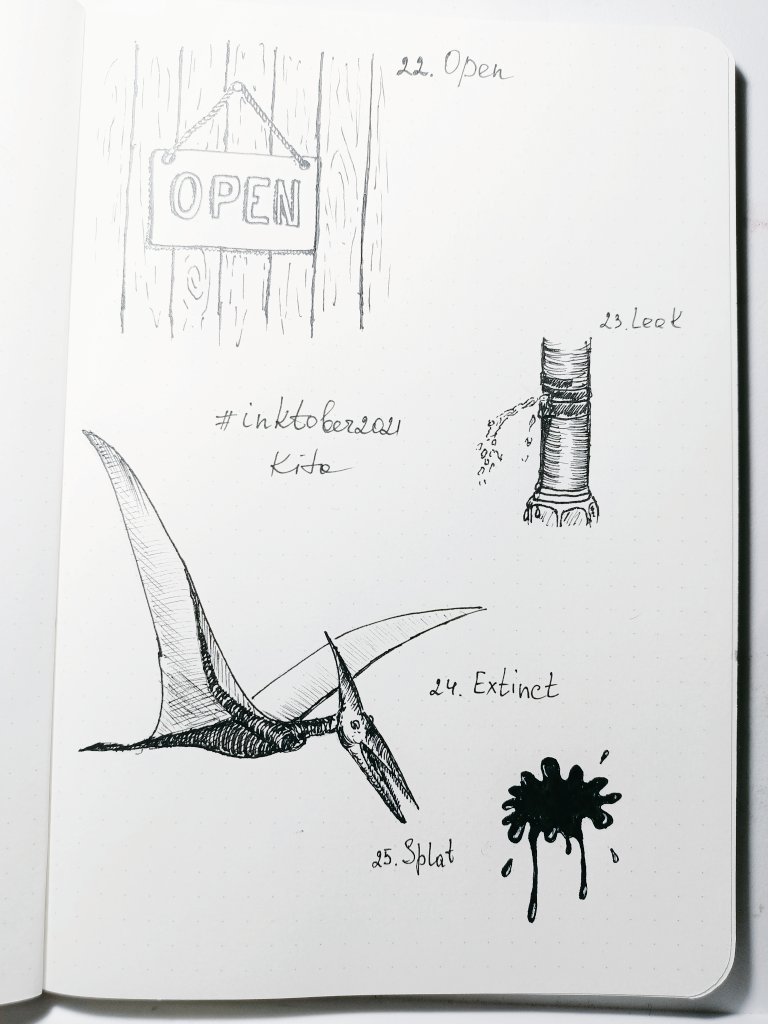 22. Open
OPEN
23. Leak
#inktober2021
Kita
24. Extinct
25. Splat